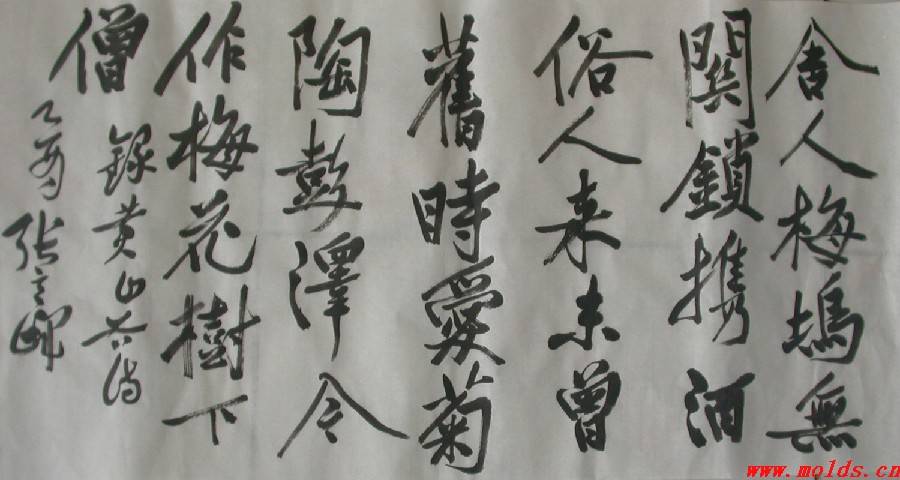 舍人梅塢無
関鎖携酒
俗人来未曾
舊時愛菊
陶彭澤令
作梅花樹下
僧
錄黄山谷詩
乙酉 張
www.molds.cn